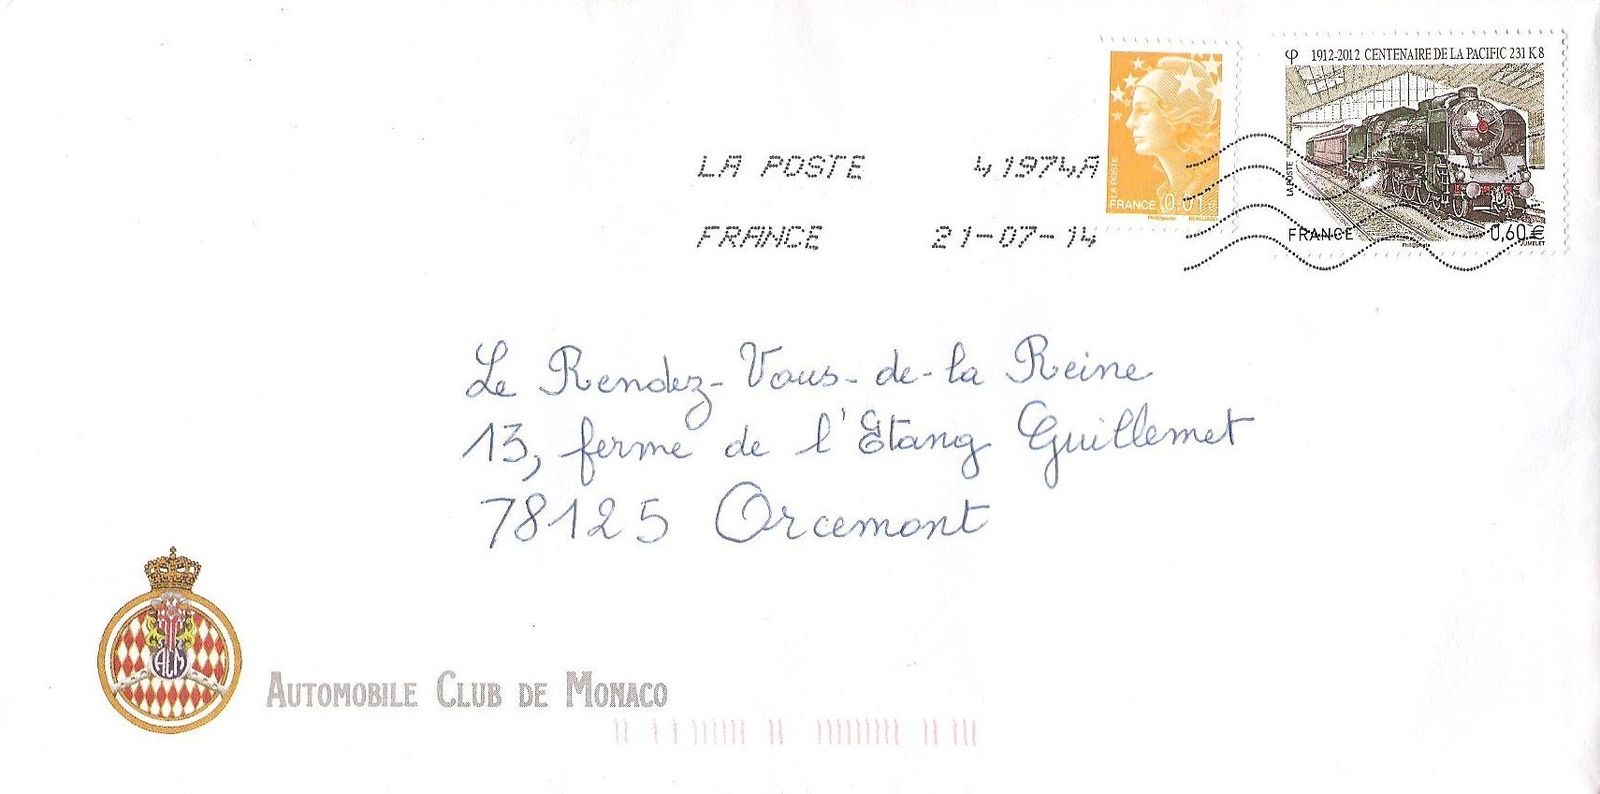 1912-2012 CENTENAIRE DE LA PACIFIC 231 K 8
LA POSTE
FRANCE 0,60€
JUMELET
LA POSTE
FRANCE 0.01€
LA POSTE 41974A
FRANCE 21-07-14
Le Rendez-Vous-de-la Reine
13, ferme de l'Etang Guillemet
78125 Orcemont
ACM
AUTOMOBILE CLUB DE MONACO